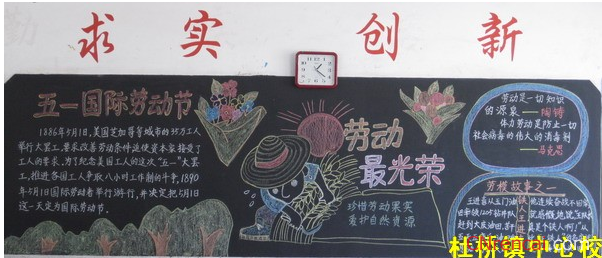 求实 创新
五一国际劳动节
1886年5月1日,美国芝加哥等城市的35万工人
举行大罢工,要求改善劳动条件迫使资本家接受了
工人的要求,为了纪念美国工人的这次"五一"大罢
工,推进各国工人争取八小时工作制的斗争,1890
年5月1日国际劳动者举行游行,并决定把5月1日
这一天定为国际劳动节。
劳动
最光荣
珍惜劳动果实
爱护自然资源
劳动是一切知识
的源泉——陶铸
体力劳动是防止一切
社会病毒的伟大的消毒剂
——马克思
劳模故事之一
铁人王进
杜桥镇中心校